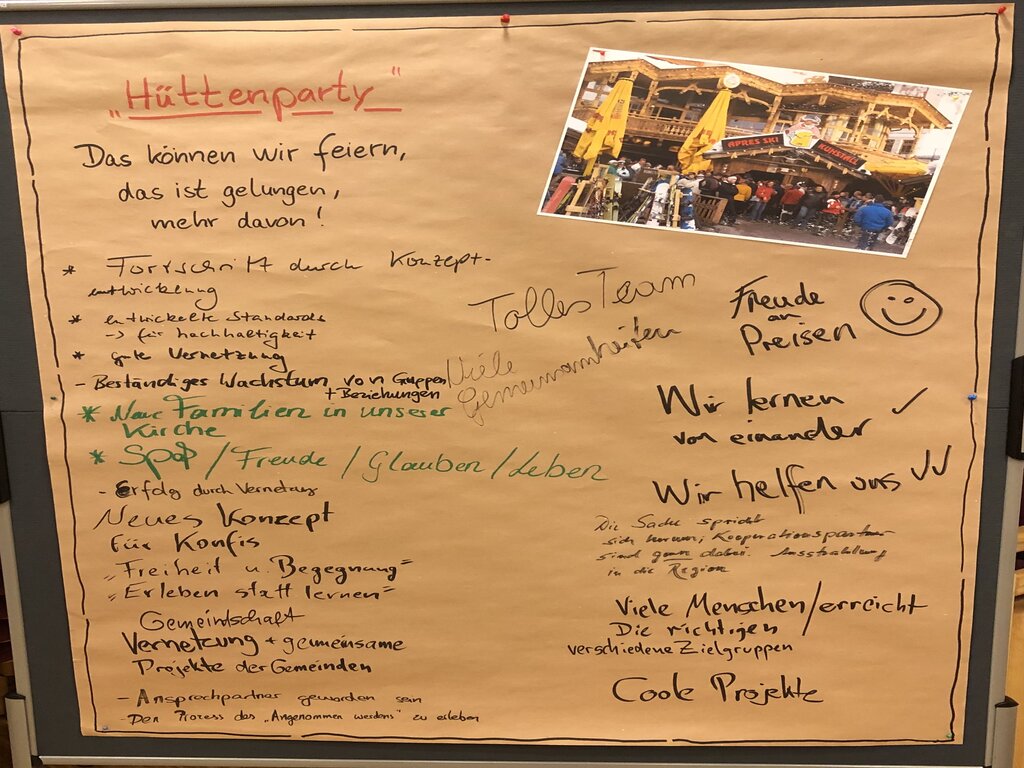 „Hüttenparty"
Das können wir feiern,
das ist gelungen,
mehr davon!
APRES SKI KUHSTALL
* Fortschritt durch Konzept-
entwicklung
* entwickelte Standards
-> für Nachhaltigkeit
* gute Vernetzung
- Beständiges Wachstum von Gruppen
+ Beziehungen
* Neue Familien in unserer
Kirche
* Spaß / Freude / Glauben / Leben
- Erfolg durch Vernetzung
Neues Konzept
für Konfis
„Freiheit u. Begegnung"
„Erleben statt lernen"
Gemeindschaft
Vernetzung + gemeinsame
Projekte der Gemeinden
- Ansprechpartner geworden sein
- Den Prozess des „Angenommen werdens" zu erleben
Tolles Team
Viele
Gemeinsamkeiten
Freude
an
Preisen
Wir lernen ✓
von einander
Wir helfen uns ✓✓
Die Sache spricht
sich herum, Kooperationspartner
sind gern dabei. Ausstrahlung
in die Region
Viele Menschen/erreicht
Die richtigen
verschiedene Zielgruppen
Coole Projekte